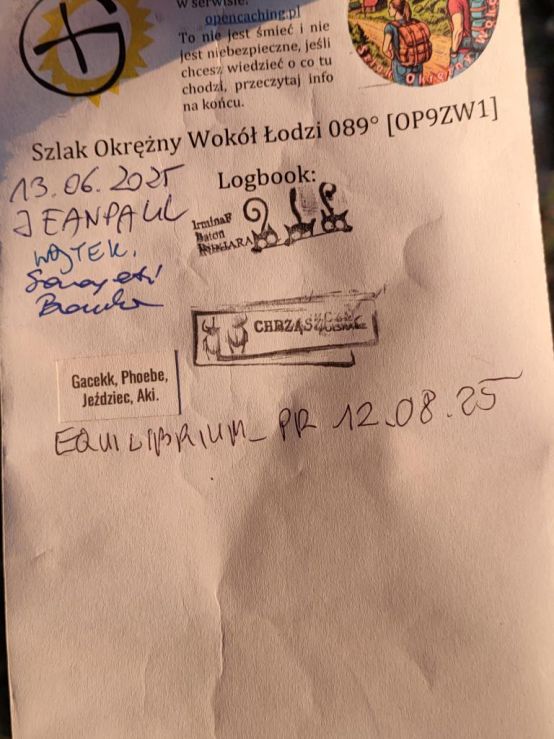 w serwisie:
opencaching.pl
To nie jest śmieć i nie
jest niebezpieczne, jeśli
chcesz wiedzieć o co tu
chodzi, przeczytaj info
na końcu.
Szlak Okrężny Wokół Łodzi 089° [OP9ZW1]
Logbook:
13.06.2025
JEANPAUL
WOJTEK.
IrminaF
Baton
CHRZĄSZ
Gacekk, Phoebe,
Jeździec, Aki.
EQUILIBRIUM_PR 12.08.25